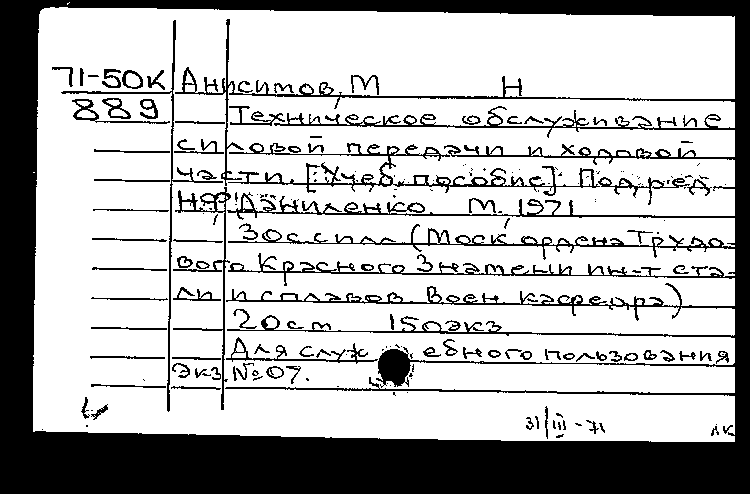 71-50К Анисимов, М Н
889 Техническое обслуживание
силовой передачи и ходовой
части. [Учеб. пособие]. Под ред.
Н.Ф. Даниленко. М., 1971
30 с с илл (Моск. ордена Трудо-
вого Красного Знамени ин-т ста-
ли и сплавов. Воен кафедра)
20 см. 150 экз.
Для служебного пользования
Экз. № 07.
31/III-71 ЛК